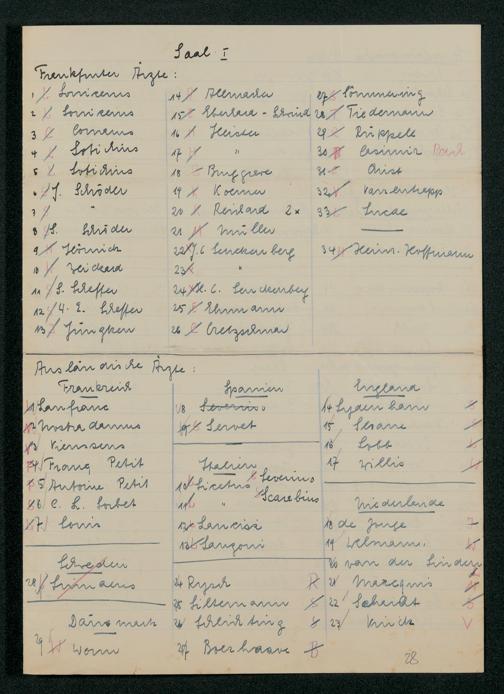 Saal I
Frankfurter Ärzte:
1 Lonicerus
2 Lonicerus
3
4 Lotichius
5 Lotichius
6 J. Schröder
7 "
8 S. Schröder
9 Hörnick
10
11 S. Scheffer
12 Scheffer
13 Jüngken
14
15 Eberhard
16 Heister
17 "
18 Bruggrave
19 Koerner
20 Reichard 2x
21 Müller
22 J. C. Senckenberg
23 "
24 H. C. Senckenberg
25 Ehrmann
26 Cretzschmar
27 Sömmering
28 Tiedemann
29 Rüppell
30 Casimir
31 Christ
32 Varrentrapp
33 Lucae
34 Heinr. Hoffmann
Ausländische Ärzte:
Frankreich
1 Lanfranc
2 Nostradamus
3 Vieussens
4 Franç Petit
5 Antoine Petit
6
7 Louis
Schweden
28 Linnaeus
Dänemark
29 Worm
Spanien
8 Severino
9 Servet
Italien
10 Licetus Severino
11 " Scarabius
12 Lancisi
13 Sangoni
24 Rysch
25
26 Schlichting
27 Boerhaave
England
14 Sydenham
15
16 Lobb
17 Willis
Niederlande
18 de Jonge
19
20 van der Linden
21
22
23
28